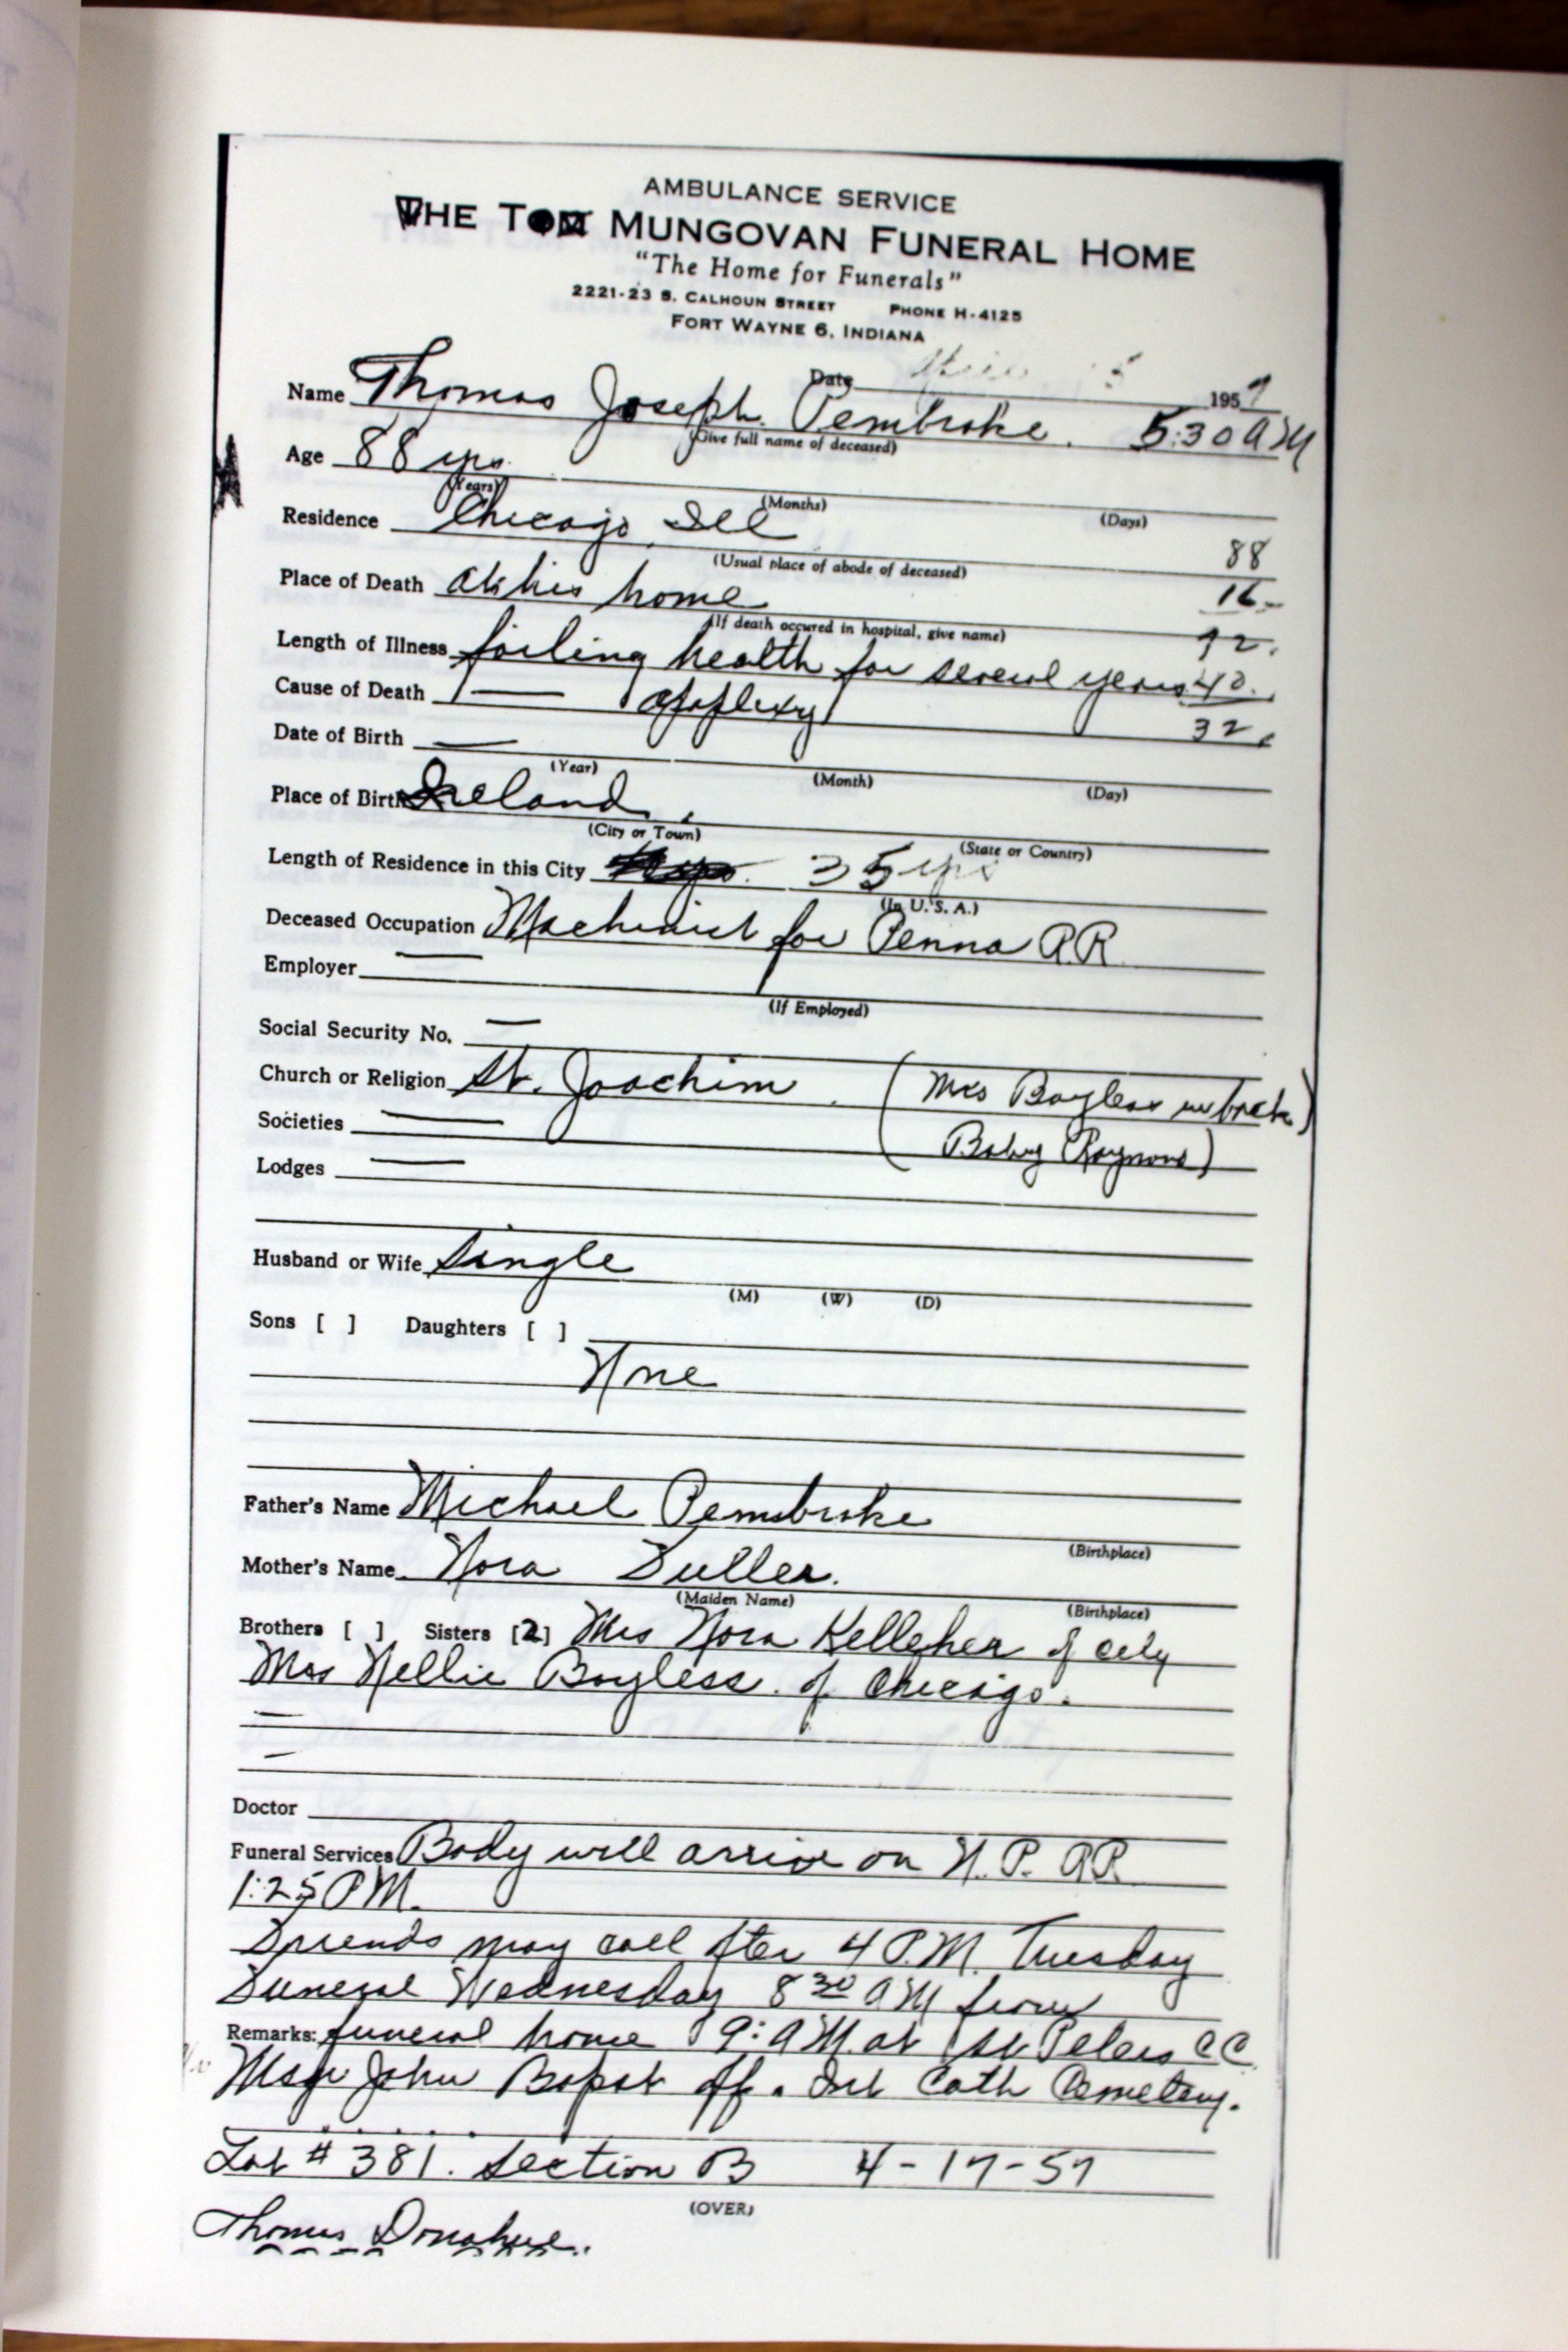 AMBULANCE SERVICE
THE TOM MUNGOVAN FUNERAL HOME
"The Home for Funerals"
2221-23 S. CALHOUN STREET PHONE H-4125
FORT WAYNE 6, INDIANA
Date April 15 1957
Name Thomas Joseph Pembroke. 5:30 AM
(Give full name of deceased)
Age 88 yrs
(Years) (Months) (Days)
Residence Chicago, Ill 88
(Usual place of abode of deceased)
Place of Death at his home 16-
(If death occured in hospital, give name) 92.
Length of Illness failing health for several years 40.
Cause of Death — apoplexy 32.
Date of Birth —
(Year) (Month) (Day)
Place of Birth Ireland.
(City or Town) (State or Country)
Length of Residence in this City 35 yrs
(In U. S. A.)
Deceased Occupation Machinist for Penna RR
Employer —
(If Employed)
Social Security No. —
Church or Religion St. Joachim. (Mrs Bayless
Societies — Raymond)
Lodges —
Husband or Wife Single
(M) (W) (D)
Sons [ ] Daughters [ ]
None
Father's Name Michael Pembroke
(Birthplace)
Mother's Name Nora Fuller.
(Maiden Name) (Birthplace)
Brothers [ ] Sisters [2] Mrs Nora Kelleher of city
Mrs Nellie Bayless. of Chicago.
—
—
Doctor
Funeral Services Body will arrive on N. P. RR
1:25 PM.
Friends may call after 4 P.M. Tuesday
Funeral Wednesday 8 30 AM from
Remarks: funeral home 9: AM. at St Peters CC
Msgr John Bapst off. Int Cath Cemetery.
Lot # 381. Section B 4-17-57
(OVER)
Thomas Donahue.